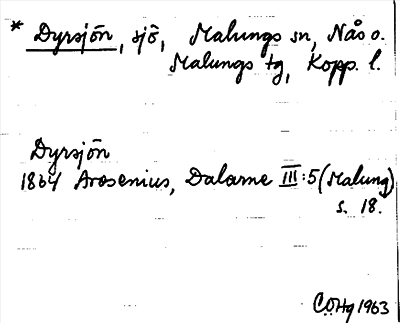 * Dyrsjön, sjö, Malungs sn, Nås o.
Malungs tg, Kopp. l.
Dyrsjön
1864 Arosenius, Dalarne III:5 (Malung)
s. 18.
CÖHg 1963